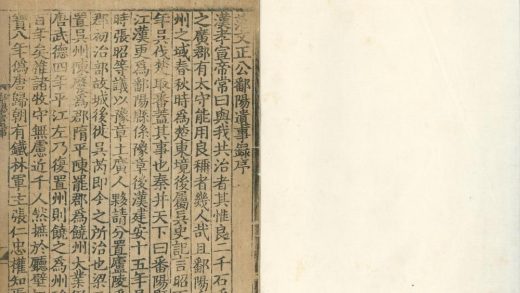 范文正公鄱陽遺事錄序
漢孝宣帝常曰與我共治者其惟良二千石
之廣郡有太守能用良稱者幾人哉且鄱陽
州之域春秋時為楚東境後屬吳史記言昭
年吳伐楚取番蓋其事也秦并天下曰番陽縣
江漢更為鄱陽縣係豫章後漢建安十五年吳
時張昭等議以豫章土廣人夥請分置廬陵
郡初治部故城後徙吳芮即今之所治也梁
置吳州陳廢為郡隋平陳罷郡為饒州大業
唐武德四年平江左乃復置州則饒之為州
百年矣諸牧守無慮近千人然摭於廳壁
八年偽唐歸朝有鐵林軍主張仁忠權知